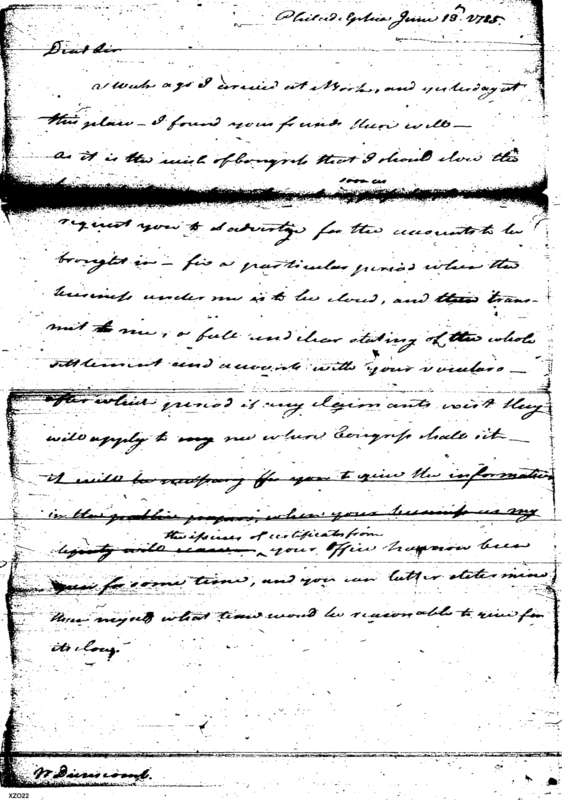 Philadelphia June 13th 1785
Dear Sir
A week ago I arrived at N York, and yesterday at
this place — I found your friends there well —
as it is the wish of Congress that I should close the
soon as
request you to advertize for the accounts to be
brought in — fix a particular period when the
business under me is to be closed, and then trans-
mit to me, a full and clear stating of the whole
settlement and accounts with your vouchers —
after which period if any claimants exist they
will apply to my me where Congress shall sit —
it will be necessary for you to give the information
in the public papers, when your business as my
the issues of certificates from
deputy will cease your Office has now been
open for some time, and you can better determine
than myself what time would be reasonable to give for
its close.
W Denscomb.
XZO22